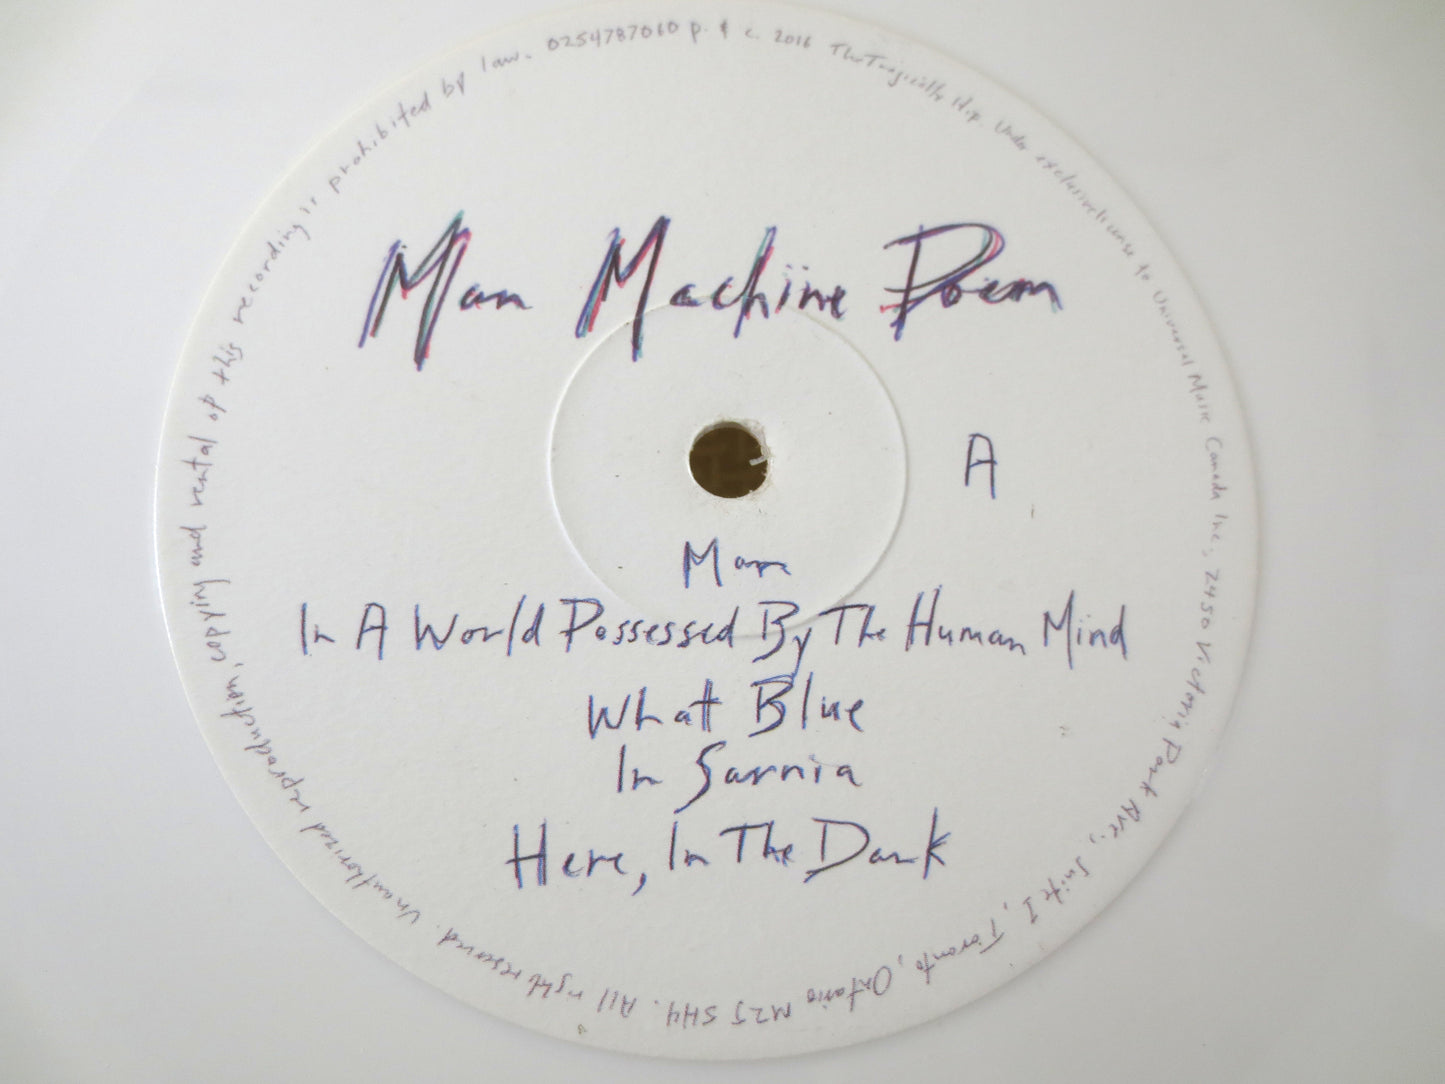 Man Machine Poem
A
Man
In A World Possessed By The Human Mind
What Blue
In Sarnia
Here, In The Dark
0254787060 p. & c. 2016 The Tragically Hip. Under exclusive license to Universal Music Canada Inc., 2450 Victoria Park Ave., Suite 1, Toronto, Ontario M2J 5H4. All right reserved. Unauthorized reproduction, copying and rental of this recording is prohibited by law.